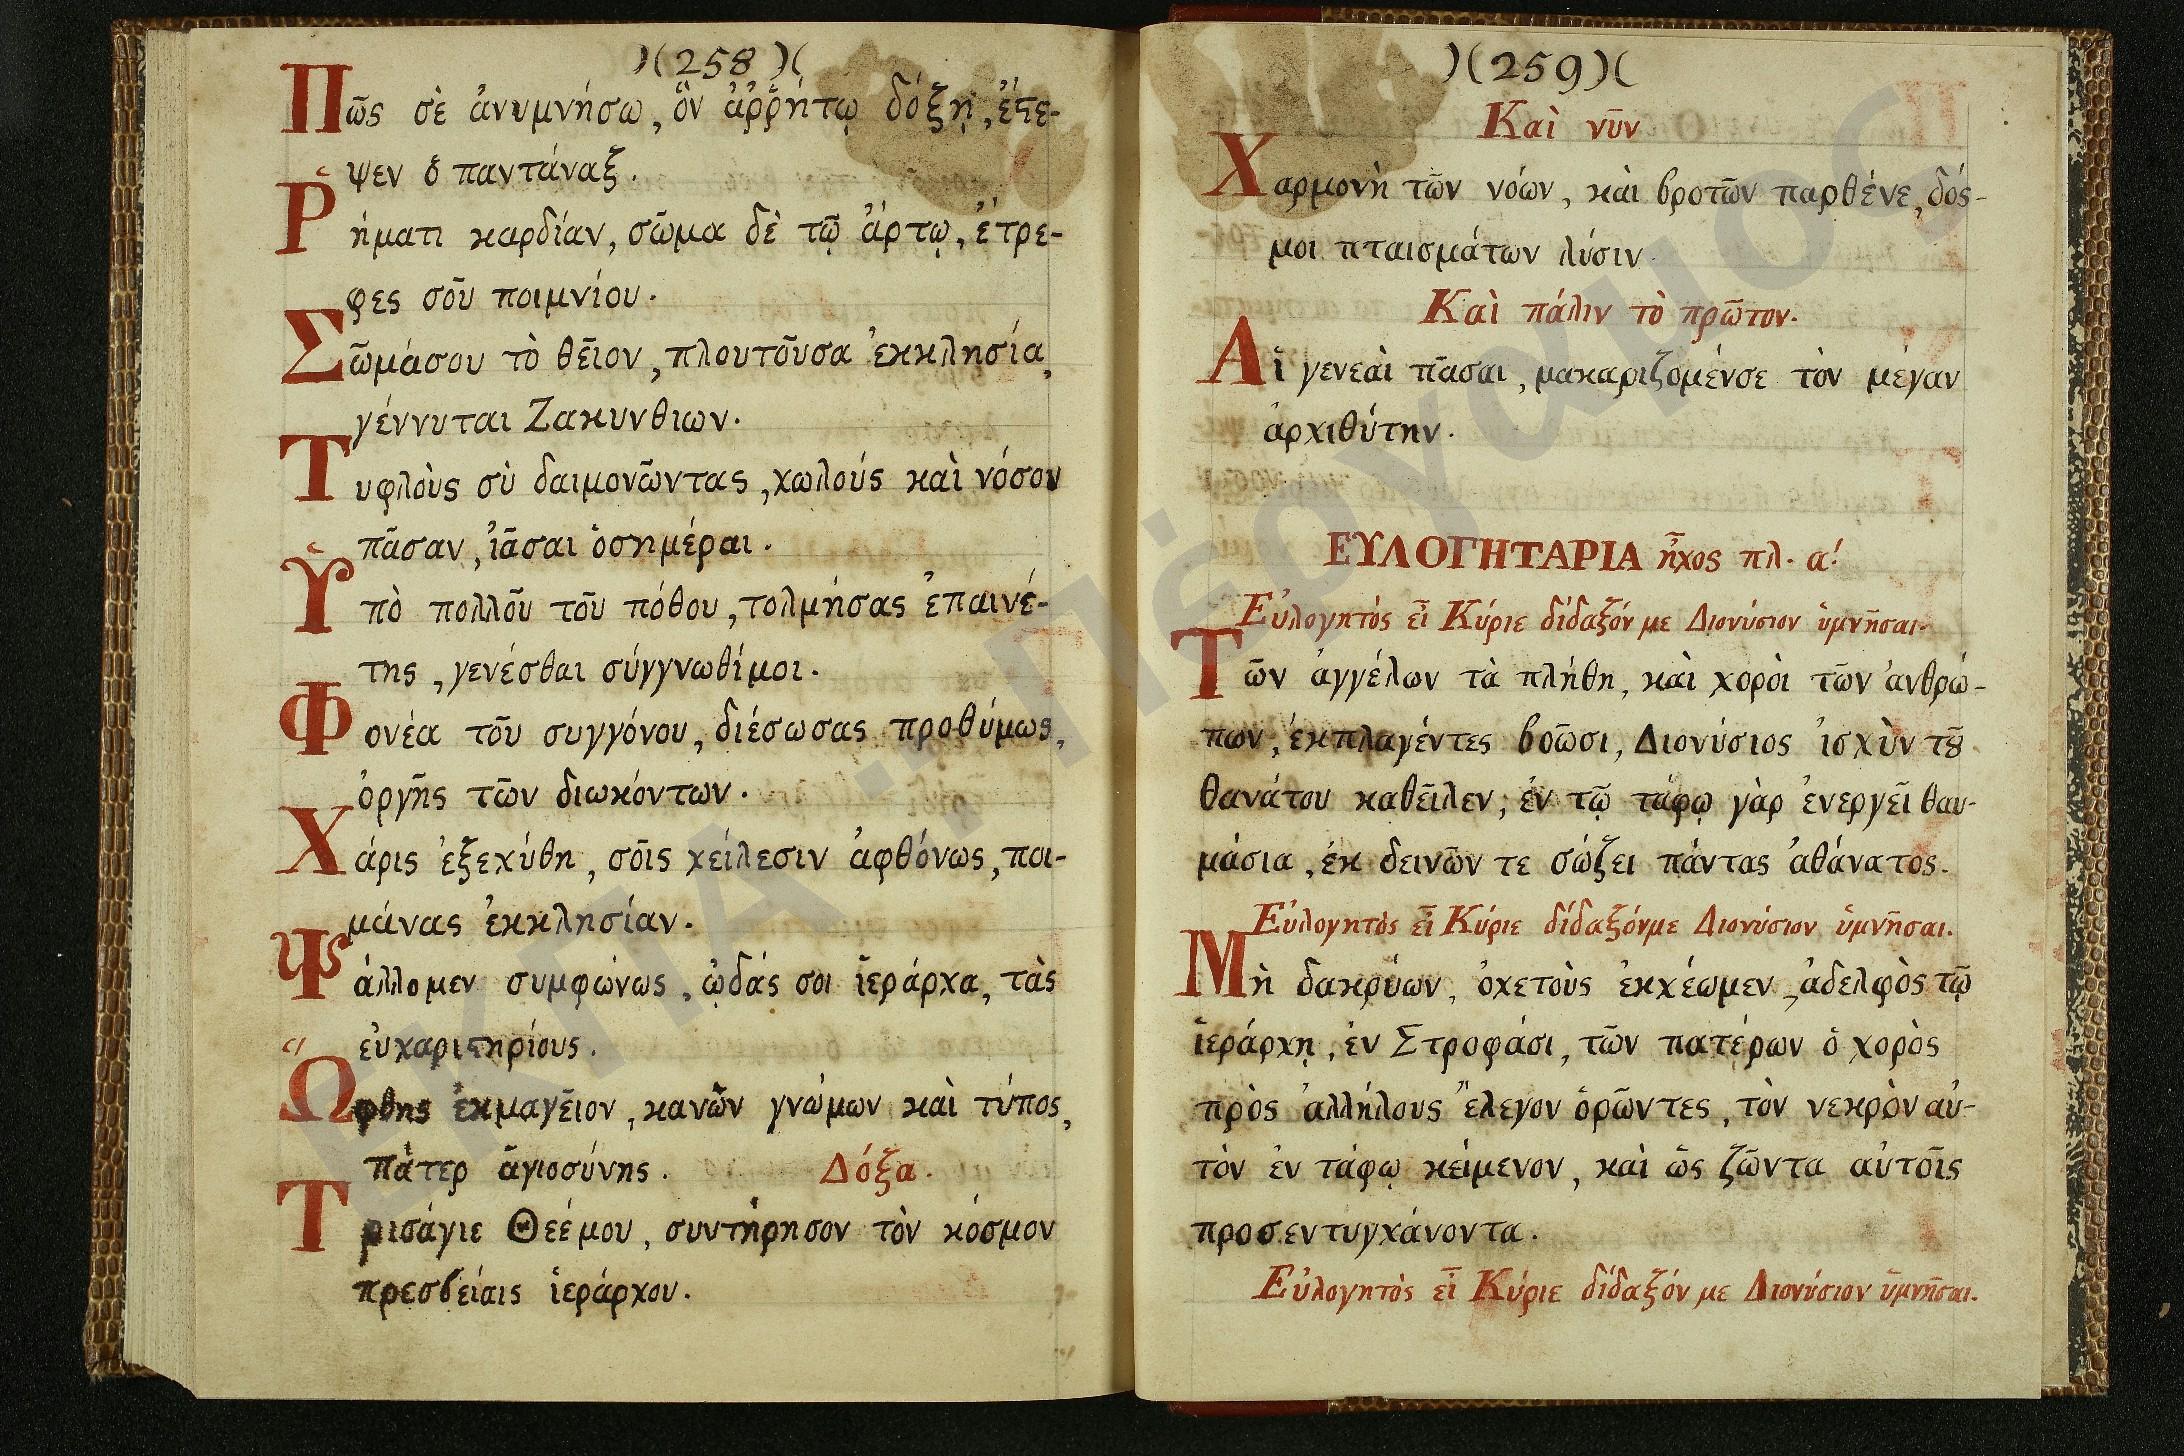 )(258)(
Πῶς σὲ ἀνυμνήσω, ὃν ἀῤῥήτῳ δόξῃ, ἔστε-
ψεν ὁ παντάναξ.
Ῥήματι καρδίαν, σῶμα δὲ τῷ ἄρτῳ, ἔτρε-
φες σοῦ ποιμνίου.
Σῶμάσου τὸ θεῖον, πλουτοῦσα ἐκκλησία,
γέννυται Ζακυνθιων.
Τυφλοὺς σὺ δαιμονῶντας, χωλούς καὶ νόσον
πᾶσαν, ἰᾶσαι ὁσημέραι.
Ὑπὸ πολλοῦ τοῦ πόθου, τολμήσας ἐπαινέ-
της, γενέσθαι σύγγνωθίμοι.
Φονέα τοῦ συγγόνου, διέσωσας προθύμως,
ὀργῆς τῶν διωκόντων.
Χάρις ἐξεχύθη, σοῖς χείλεσιν ἀφθόνως, ποι-
μάνας ἐκκλησίαν.
Ψάλλομεν συμφώνως, ᾠδάς σοι ἱεράρχα, τὰς
εὐχαριστηρίους.
Ὤφθης ἐκμαγεῖον, κανὼν γνώμων καὶ τύπος,
πάτερ ἁγιοσύνης. Δόξα.
Τρισάγιε Θεέμου, συντήρησον τὸν κόσμον
πρεσβείαις ἱεράρχου.
)(259)(
Καὶ νῦν
Χαρμονὴ τῶν νόων, καὶ βροτῶν παρθένε, δός-
μοι πταισμάτων λύσιν.
Καὶ πάλιν τὸ πρῶτον.
Αἱ γενεαὶ πᾶσαι, μακαριζομένσε τὸν μέγαν
ἀρχιθύτην.
ΕΥΛΟΓΗΤΑΡΙΑ ἦχος πλ. α!
Εὐλογητὸς εἶ Κύριε δίδαξόν με Διονύσιον ὑμνῆσαι.
Τῶν ἀγγέλων τὰ πλήθη, καὶ χοροὶ τῶν ἀνθρώ-
πων, ἐκπλαγέντες βοῶσι, Διονύσιος ἰσχὺν τȣ͂
θανάτου καθεῖλεν, ἐν τῷ τάφῳ γὰρ ἐνεργεῖ θαυ-
μάσια, ἐκ δεινῶν τε σώζει πάντας ἀθάνατος.
Εὐλογητὸς εἶ Κύριε δίδαξόνμε Διονύσιον ὑμνῆσαι.
Μὴ δακρύων, ὀχετοὺς ἐκχέωμεν, ἀδελφὸς τῷ
ἱεράρχῃ, ἐν Στροφάσι, τῶν πατέρων ὁ χορὸς
πρὸς ἀλλήλους ἔλεγον ὁρῶντες, τὸν νεκρὸν αὐ-
τὸν ἐν τάφῳ κείμενον, καὶ ὡς ζῶντα αὐτοῖς
προσεντυγχάνοντα.
Εὐλογητὸς εἶ Κύριε δίδαξόν με Διονύσιον ὑμνῆσαι.
ΕΚΠΑ : Πέργαμος